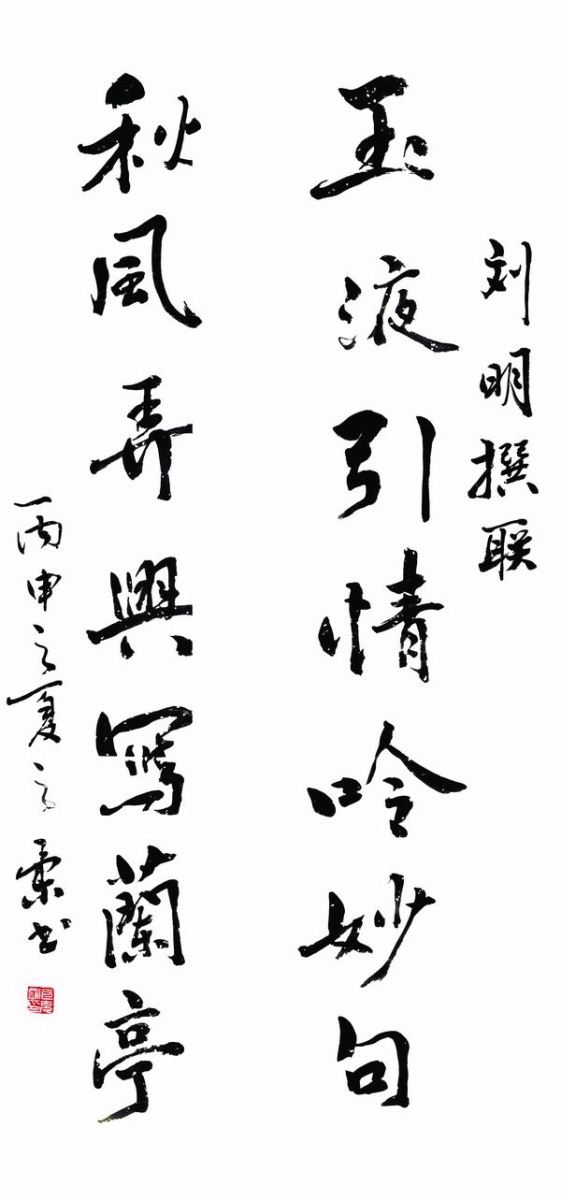 刘明撰联
玉液引情吟妙句
秋風弄興寫蘭亭
丙申之夏 书